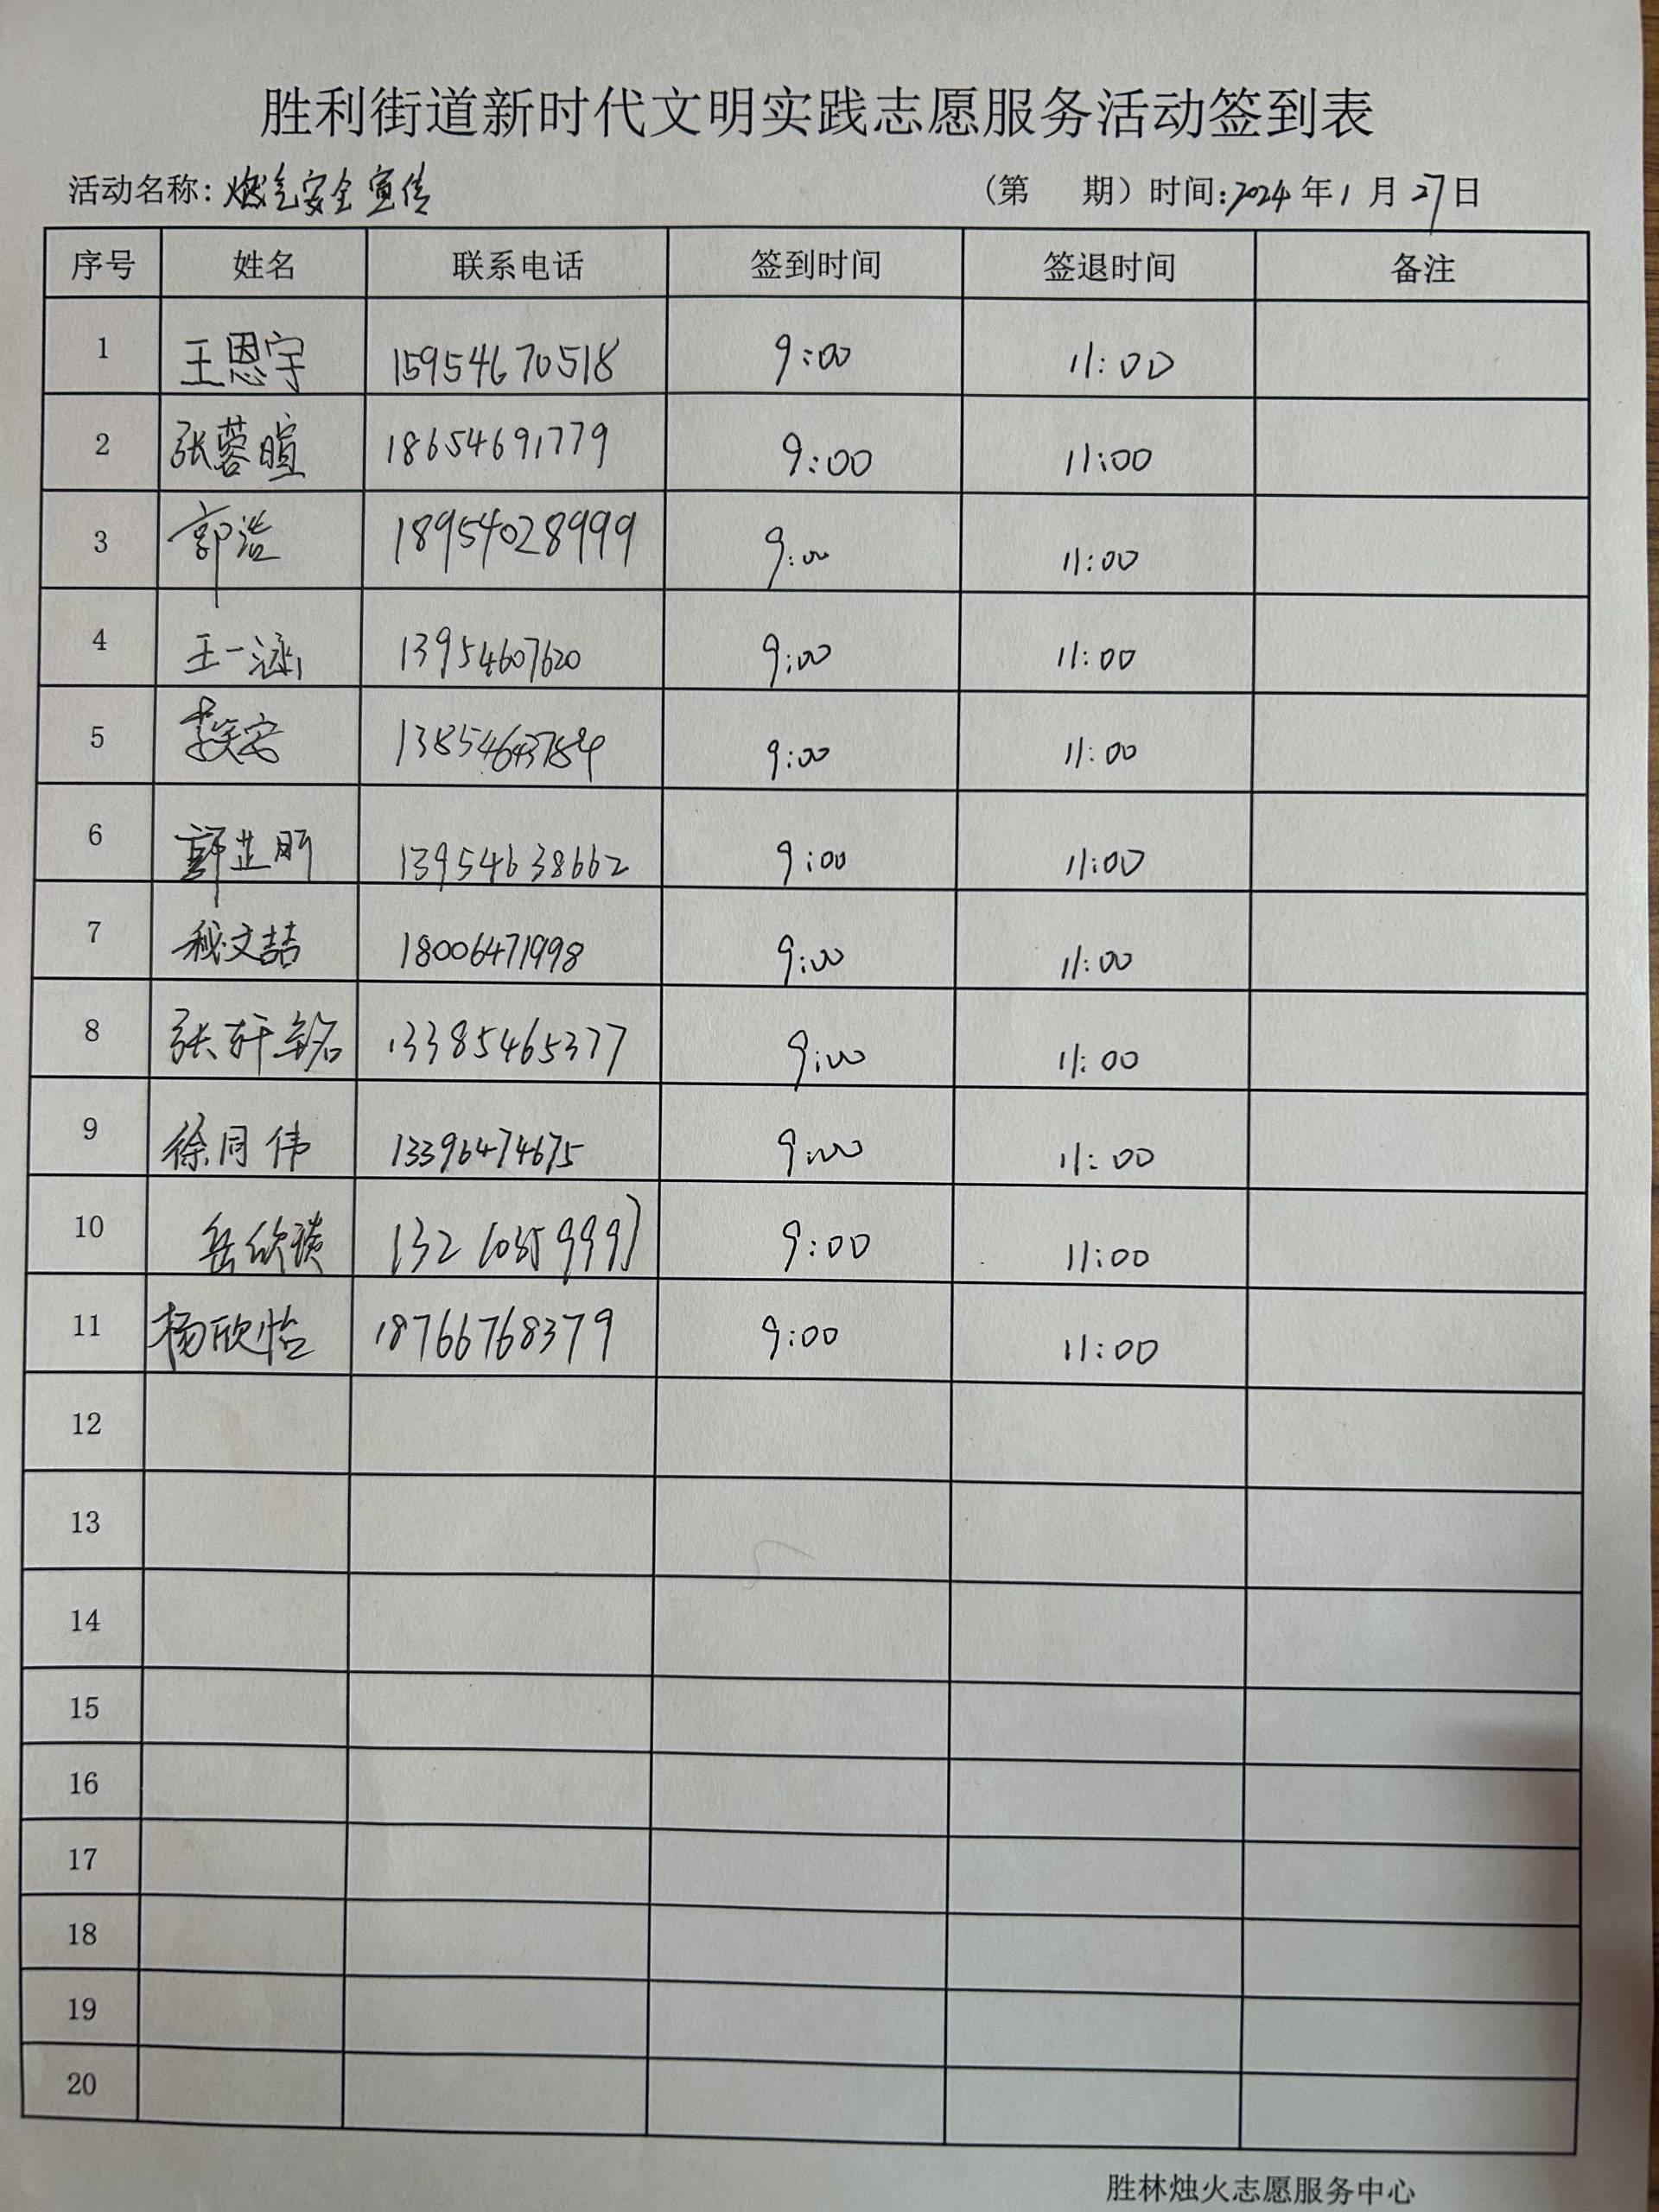 胜利街道新时代文明实践志愿服务活动签到表
活动名称：燃气安全宣传 （第 期）时间：2024年1月27日
序号 姓名 联系电话 签到时间 签退时间 备注
1 王恩宇 15954670518 9:00 11:00
2 张蓉暄 18654691779 9:00 11:00
3 郭浩 18954028999 9:00 11:00
4 王一涵 13954607620 9:00 11:00
5 9:00 11:00
6 郭芷昕 13954638662 9:00 11:00
7 秘文喆 18006471998 9:00 11:00
8 张轩铭 13385465377 9:00 11:00
9 徐同伟 13396474675 9:00 11:00
10 岳欣瑛 9:00 11:00
11 杨欣怡 18766768379 9:00 11:00
12
13
14
15
16
17
18
19
20
胜林烛火志愿服务中心